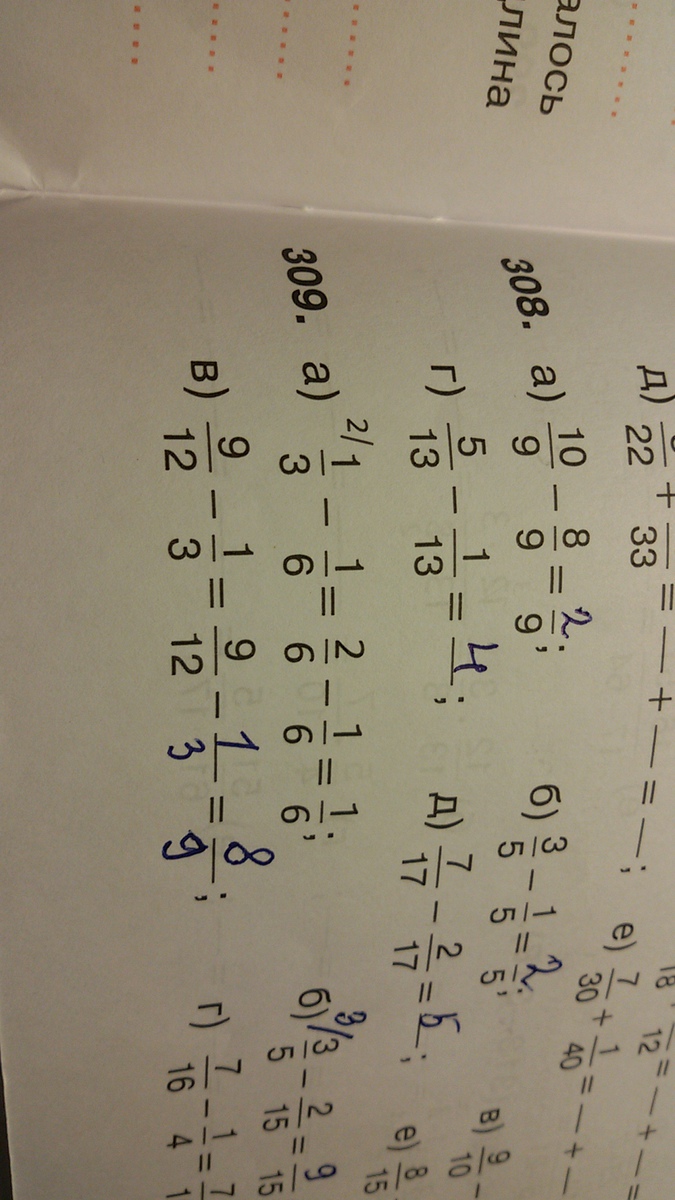 алось
лина
д) /22 + /33 = — + — = — ;
18 12 = — + — =
е) 7/30 + 1/40 = — + —
308. а) 10/9 − 8/9 = 2/9; б) 3/5 − 1/5 = 2/5; в) 9/10 −
г) 5/13 − 1/13 = 4/ ; д) 7/17 − 2/17 = 5/ ; е) 8/15
309. а) 2/ 1/3 − 1/6 = 2/6 − 1/6 = 1/6; б) 3/ 3/5 − 2/15 = 9/15
в) 9/12 − 1/3 = 9/12 − 1/3 = 8/9; г) 7/16 − 1/4 = 7/1